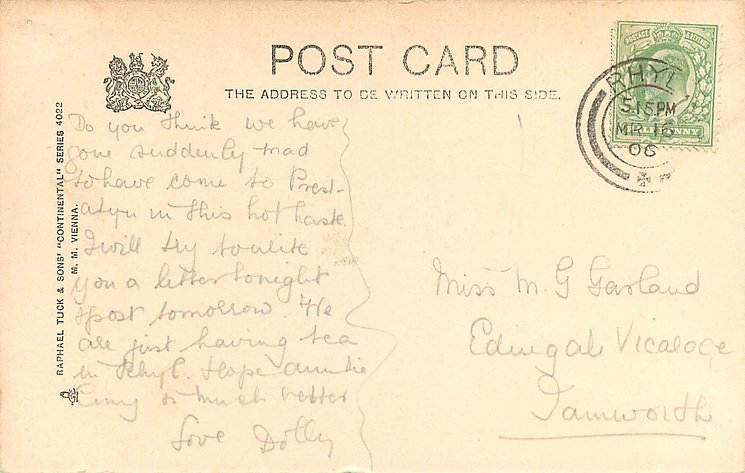 POST CARD
THE ADDRESS TO BE WRITTEN ON THIS SIDE.
RAPHAEL TUCK & SONS' "CONTINENTAL" SERIES 4022
M. M. VIENNA.
POSTAGE & REVENUE
RHYL
5.15 PM
MR 16
06
PENNY
Do you think we have
gone suddenly mad
to have come to Prest-
atyn in this hot haste.
I will try to write
you a letter tonight
& post tomorrow. We
are just having tea
in Rhyl. Hope Auntie
is much better
Love Dolly
Miss M. G Garland
Edingale Vicarage
Tamworth